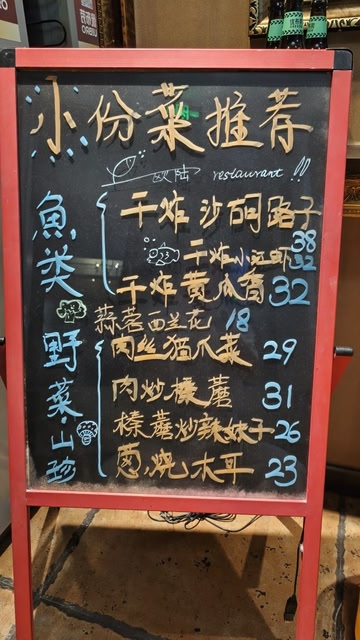 小份菜推荐
restaurant !!
魚类
干炸 沙 路子 38
干炸小河虾 32
干炸黄瓜香 32
蒜蓉西兰花 18
野菜·山珍
肉丝猫爪菜 29
肉炒榛蘑 31
榛蘑炒辣妹子 26
葱烧木耳 23